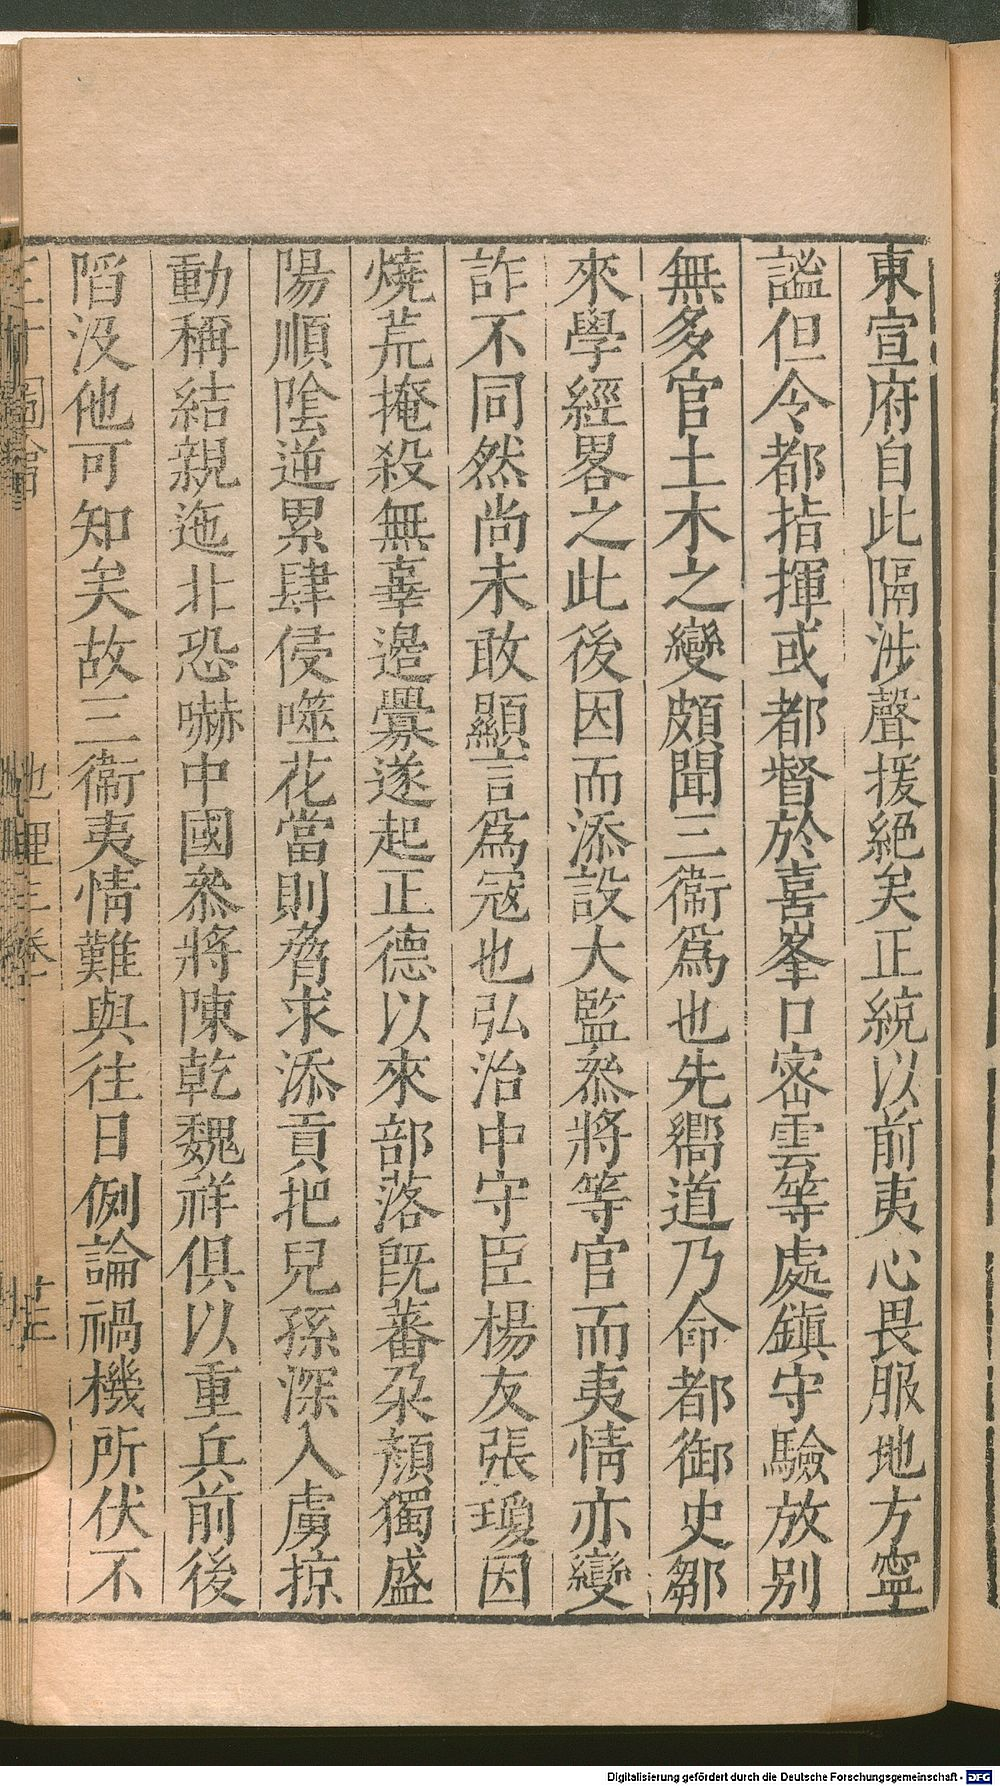 東宣府自此隔涉聲援絕矣正統以前夷心畏服地方寧
謐但令都指揮或都督於喜峯口密雲等處鎮守驗放別
無多官土木之變頗聞三衞爲也先嚮道乃命都御史鄒
來學經畧之此後因而添設大監叅將等官而夷情亦變
詐不同然尚未敢顯言爲寇也弘治中守臣楊友張瓊因
燒荒掩殺無辜邉釁遂起正德以來部落旣蕃朶顏獨盛
陽順陰逆累肆侵噬花當則脅求添貢把兒孫深入虜掠
動稱結親迤北恐嚇中國叅將陳乾魏祥俱以重兵前後
陷没他可知矣故三衞夷情難與往日例論禍機所伏不
Digitalisierung gefördert durch die Deutsche Forschungsgemeinschaft - DFG